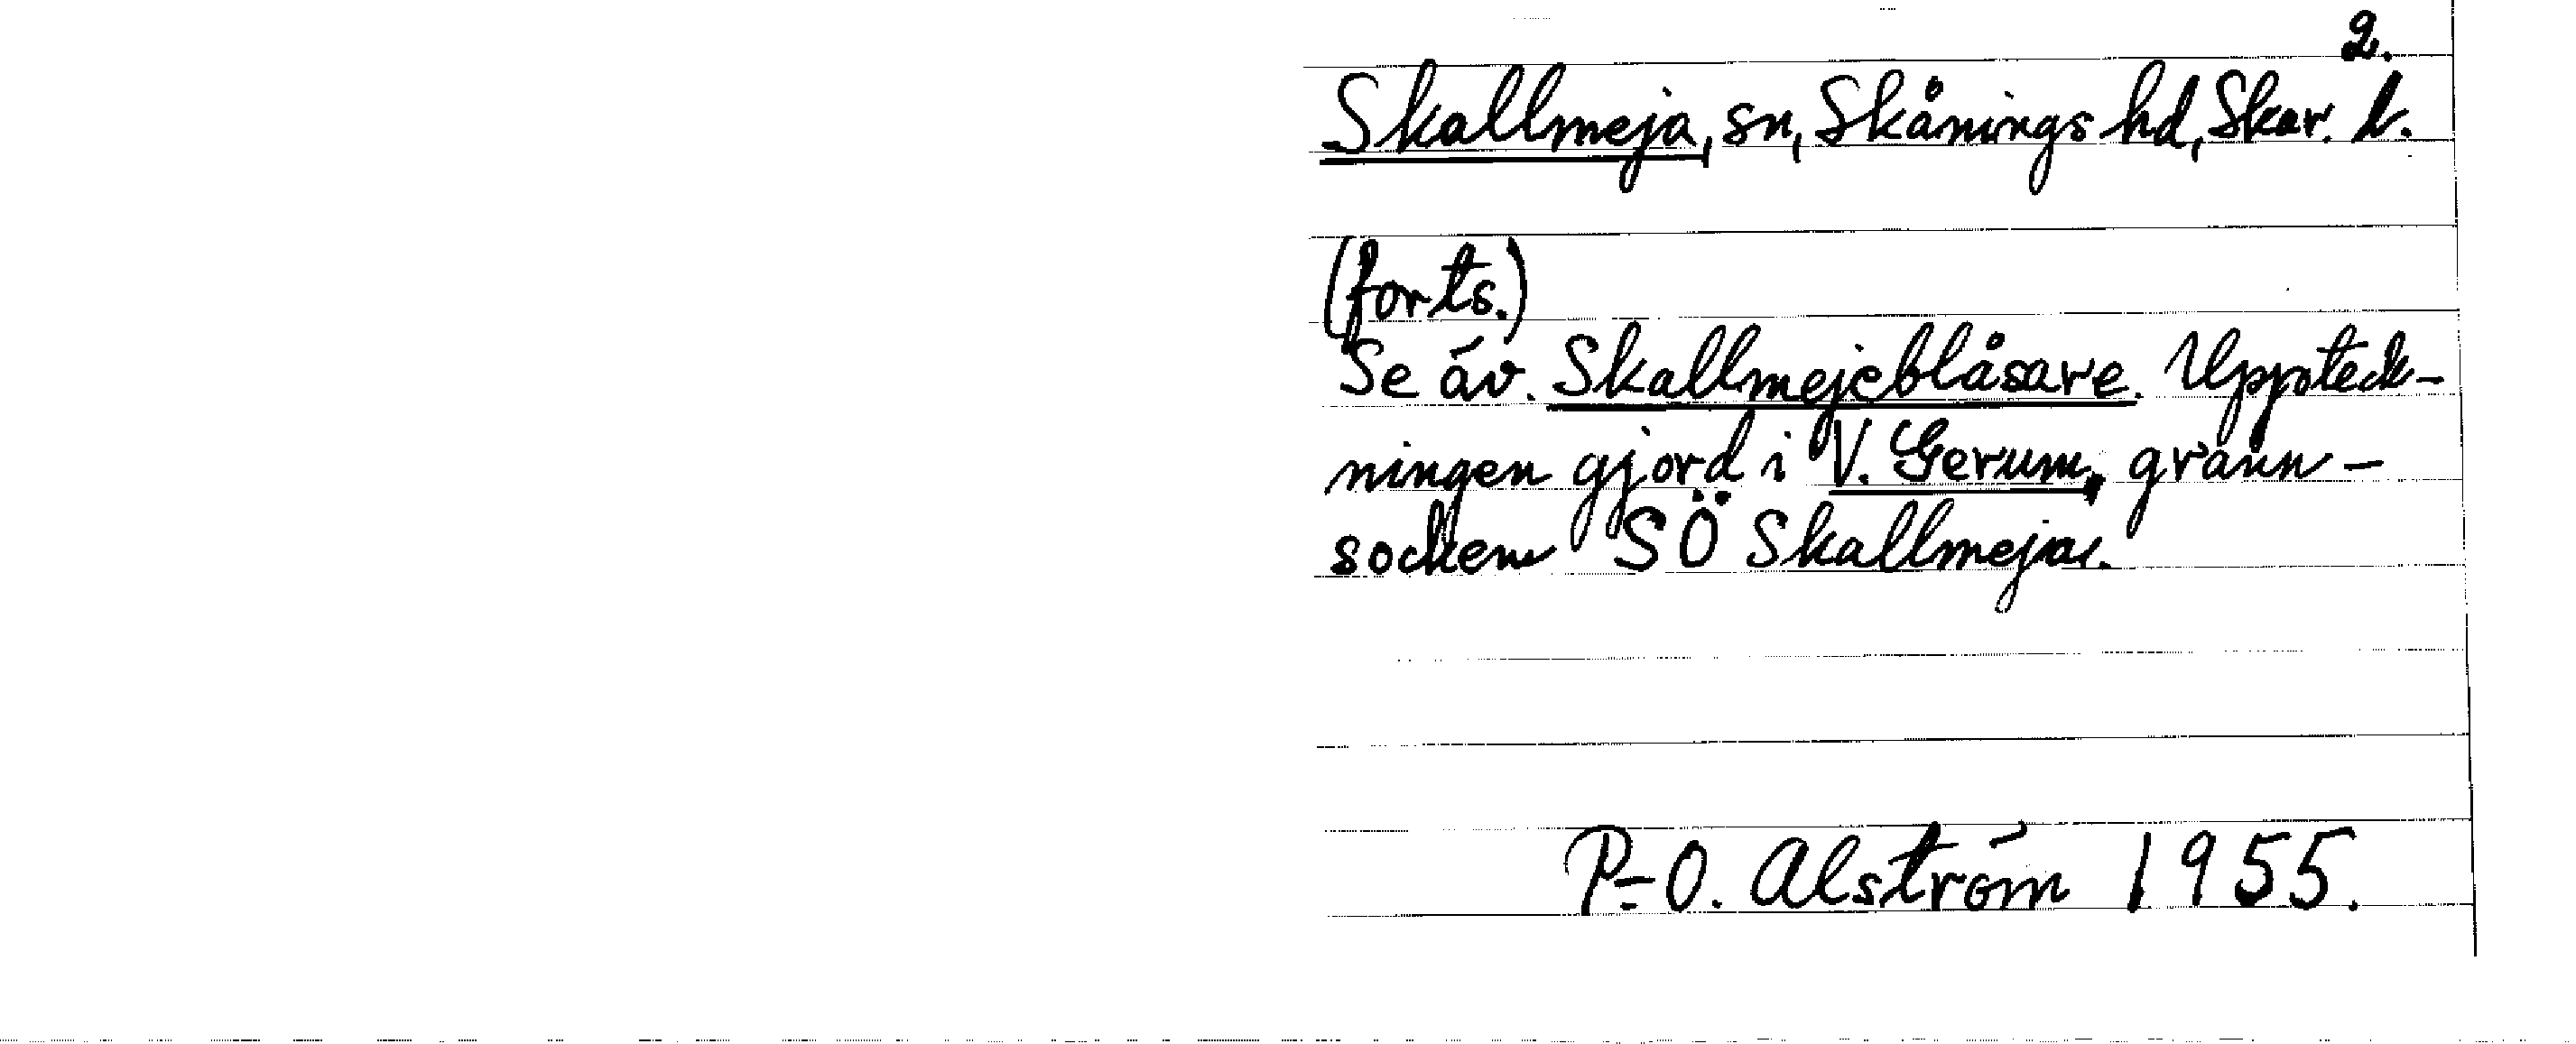 2.
Skallmeja, sn, Skånings hd, Skar. l.
(forts.)
Se äv. Skallmejeblåsare. Uppteck-
ningen gjord i V. Gerum, gränn-
socken SÖ Skallmeja.
P-O. Alström 1955.